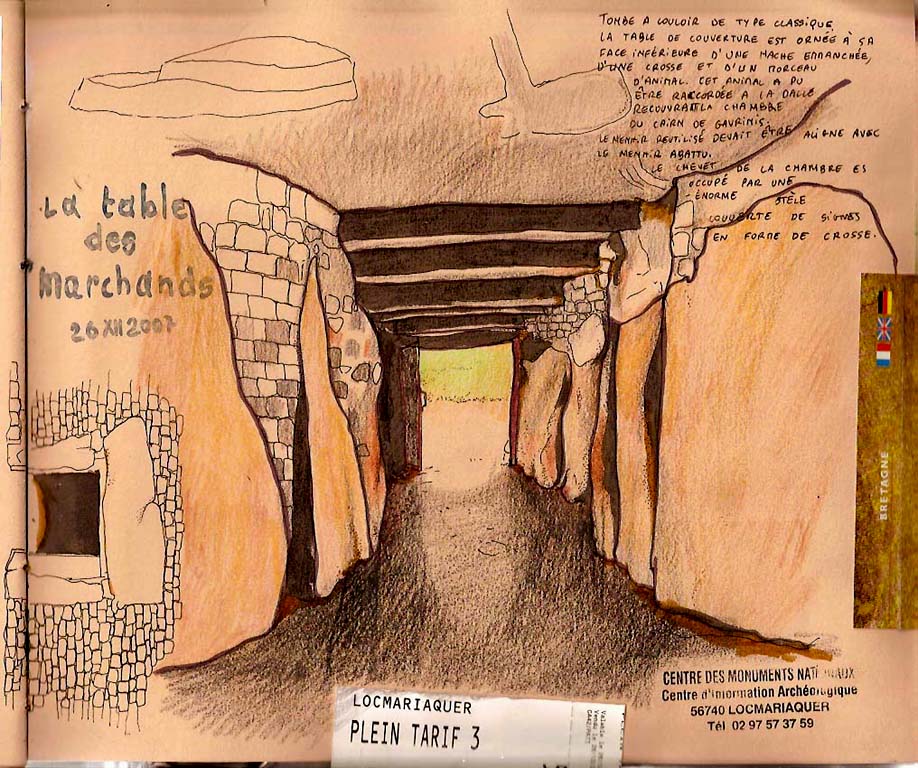 TOMBE A COULOIR DE TYPE CLASSIQUE,
LA TABLE DE COUVERTURE EST ORNÉE À SA
FACE INFÉRIEURE D'UNE HACHE EMMANCHÉE,
D'UNE CROSSE ET D'UN MORCEAU
D'ANIMAL. CET ANIMAL A PU
ÊTRE RACCORDÉE A LA DALLE
RECOUVRANT LA CHAMBRE
DU CAIRN DE GAVRINIS.
LE MENHIR REUTILISÉ DEVAIT ÊTRE ALIGNE AVEC
LE MENHIR ABATTU.
LE CHEVET DE LA CHAMBRE ES
OCCUPÉ PAR UNE
ÉNORME STÈLE
COUVERTE DE SIGNES
EN FORME DE CROSSE.
La table
des
Marchands
26 XII 2007
BRETAGNE
CENTRE DES MONUMENTS NATIONAUX
Centre d'information Archéologique
56740 LOCMARIAQUER
Tél 02 97 57 37 59
LOCMARIAQUER
PLEIN TARIF 3